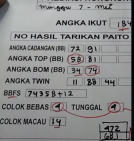 minggu 7 - mei
ANGKA IKUT 184
NO HASIL TARIKAN PAITO
ANGKA CADANGAN (BB) 72 91
ANGKA TOP (BB) 58 81
ANGKA BOM (BB) 34 74
ANGKA TWIN 11 88 44
BBFS 74358+12
COLOK BEBAS 4 TUNGGAL 9
COLOK MACAU 14
472
681